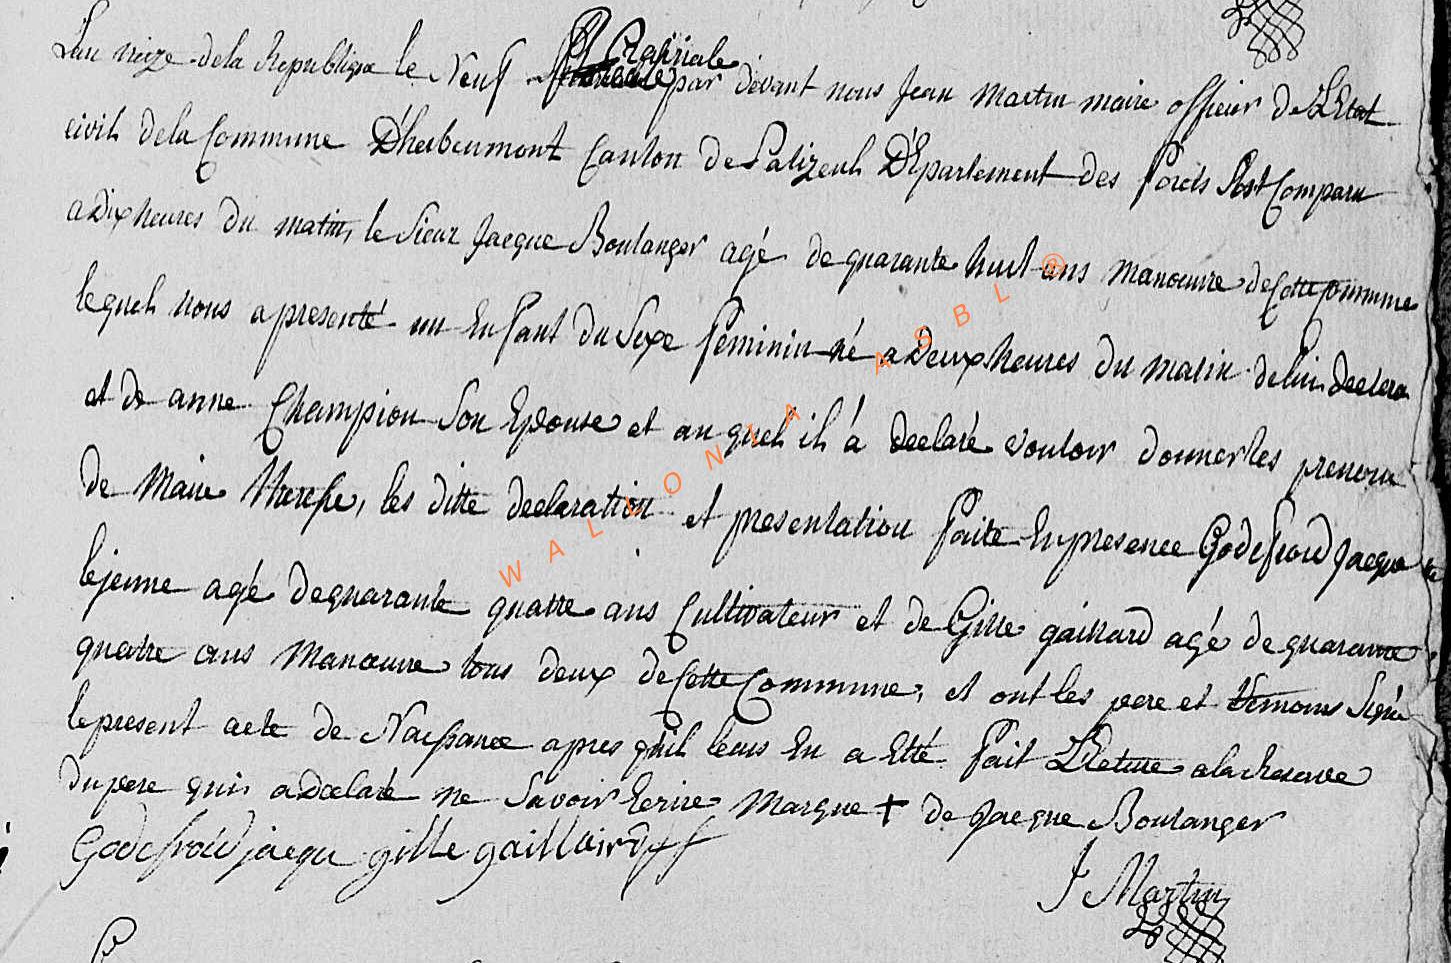 L'an treize de la Republique le Neuf Prairiale par devant nous Jean Martin maire officier de L'Etat
civil de la Commune D'herbeumont Canton de Palizeul Département des forets Est Comparu
a Dix heures du matin, le Sieur Jacque Boulanger agé de quarante huit ans manœuvre de Cette Commune
lequel nous a presenté un Enfant du Sexe feminin né a Deux heures du matin de lui declara
et de anne Champion Son Epouse et au quel il á declaré vouloir donner les prenom
de Marie Therese, les ditte declaration et presentation faite En presence Godefroid Jacque
le jeune agé de quarante quatre ans Cultivateur et de Gille gaillard agé de quarante
quatre ans Manœuvre tous deux de Cette Commune, et ont les pere et temoins Signé
le present acte de Naissance apres qu'il leurs En a Etté fait Lecture a la Reserve
du pere qui a declaré ne Savoir Ecrire Marque + de Jacque Boulanger
Godefroid jacque gille gaillaird
J Martin
WALLONIA ASBL ®